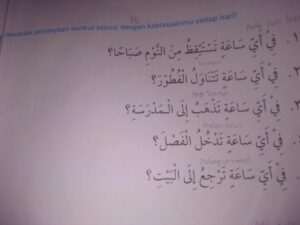 Jawablah pertanyaan berikut sesuai dengan kebiasaanmu setiap hari!
فِيْ أَيِّ سَاعَةٍ تَسْتَيْقِظُ مِنَ النَّوْمِ صَبَاحًا؟
٢. فِيْ أَيِّ سَاعَةٍ تَتَنَاوَلُ الْفُطُوْرَ؟
فِيْ أَيِّ سَاعَةٍ تَذْهَبُ إِلَى الْمَدْرَسَةِ؟
فِيْ أَيِّ سَاعَةٍ تَدْخُلُ الْفَصْلَ؟
فِيْ أَيِّ سَاعَةٍ تَرْجِعُ إِلَى الْبَيْتِ؟